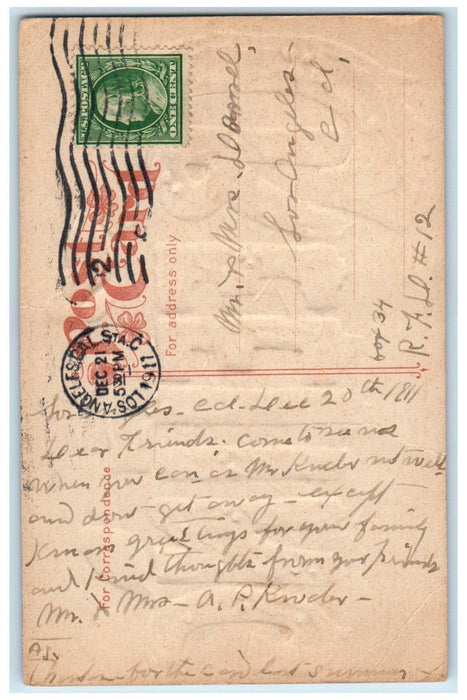 U.S. POSTAGE
ONE CENT
Post Card
For address only
Mr & Mrs Daniel
Los Angeles
Cal,
Box 34
R. F. D. #12
LOS ANGELES, CAL. STA. C
DEC 21
5 30 PM
1911
For Correspondence
Los Angeles - Cal. Dec 20th 1911
Dear Friends. Come to see us
when you can as Mr not well
and dont get away - except
greetings for your family
and kind thoughts from your friends
Mr. & Mrs - A. P.
for the card last summer